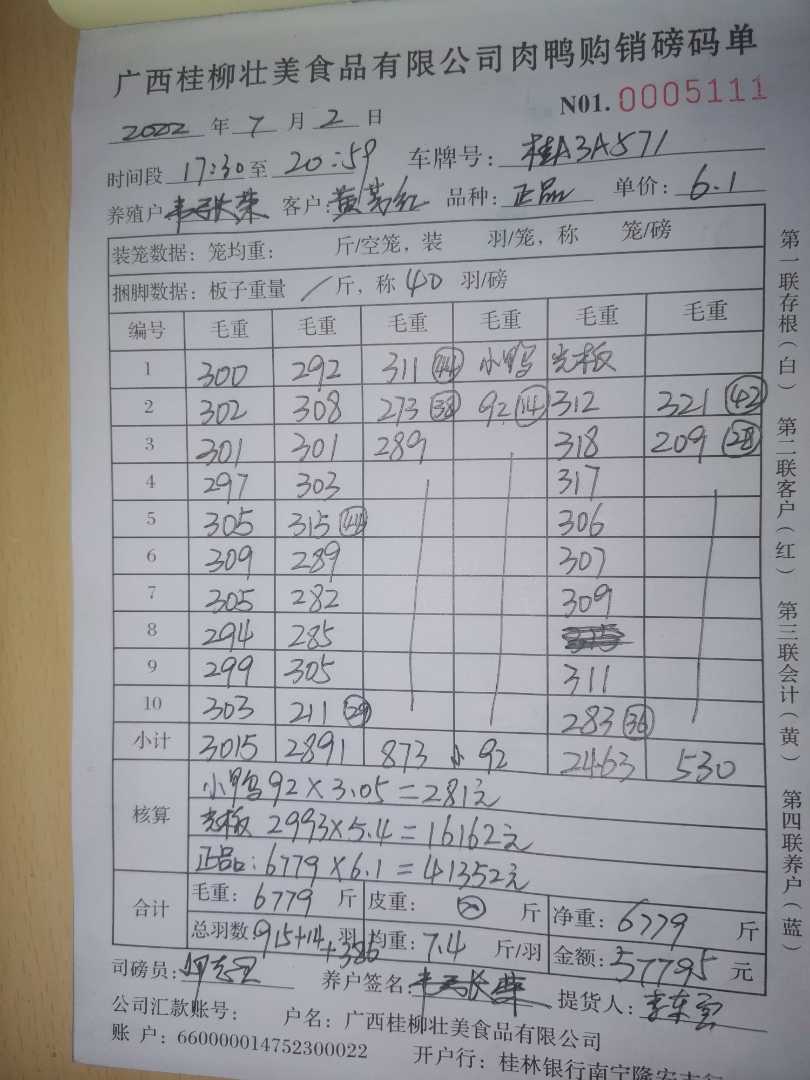 广西桂柳壮美食品有限公司肉鸭购销磅码单
2022 年 7 月 2 日 N01. 0005111
时间段 17:30 至 20:59 车牌号: 桂A3A571
养殖户 客户: 黄 红 品种: 正品 单价: 6.1
装笼数据: 笼均重: 斤/空笼, 装 羽/笼, 称 笼/磅
捆脚数据: 板子重量 / 斤, 称 40 羽/磅
编号 毛重 毛重 毛重 毛重 毛重 毛重
1 300 292 311 (44) 小鸭 光板
2 302 308 273 (38) 92 (14) 312 321 (42)
3 301 301 289 318 209 (28)
4 297 303 317
5 305 315 (44) 306
6 309 289 307
7 305 282 309
8 294 285
9 299 305 311
10 303 211 (29) 283 (36)
小计 3015 2891 873 小 92 2463 530
核算 小鸭92×3.05=281元
光板 2993×5.4=16162元
正品:6779×6.1=41352元
合计 毛重: 6779 斤 皮重: 斤 净重: 6779 斤
总羽数: 915+14+386 羽 均重: 7.4 斤/羽 金额: 57795 元
司磅员: 养户签名: 提货人: 李东
公司汇款账号: 户名: 广西桂柳壮美食品有限公司
账 户: 660000014752300022 开户行: 桂林银行南宁隆安支行
第一联存根(白) 第二联客户(红) 第三联会计(黄) 第四联养户(蓝)